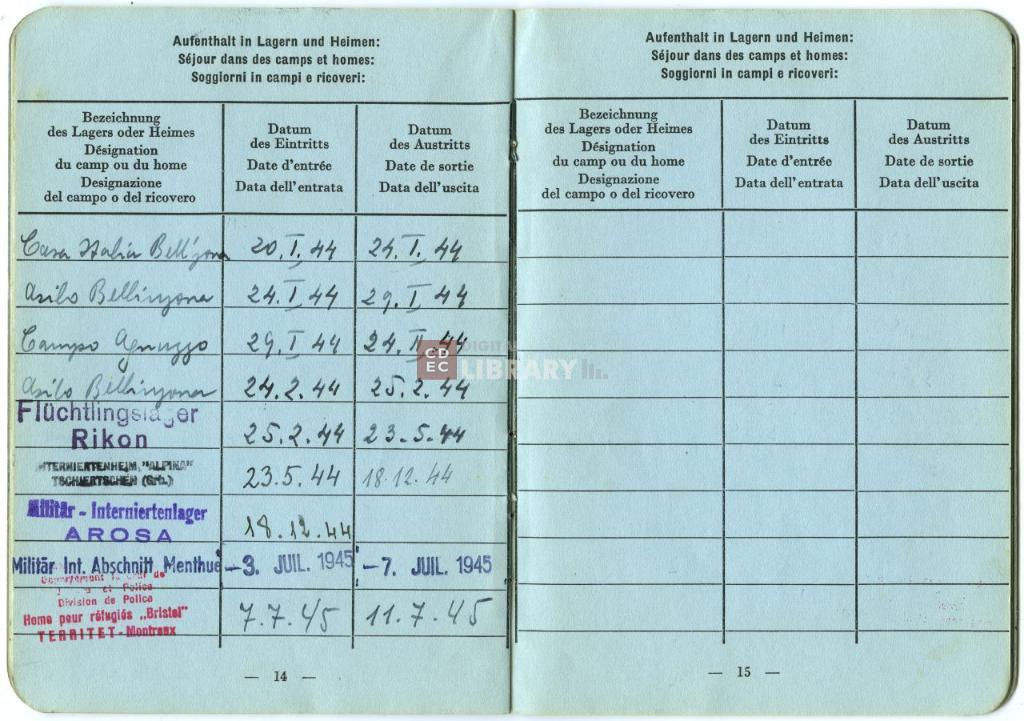 Aufenthalt in Lagern und Heimen:
Séjour dans des camps et homes:
Soggiorni in campi e ricoveri:
Bezeichnung
des Lagers oder Heimes
Désignation
du camp ou du home
Designazione
del campo o del ricovero
Datum
des Eintritts
Date d'entrée
Data dell'entrata
Datum
des Austritts
Date de sortie
Data dell'uscita
Casa Italia Bell'zona 20. I. 44 24. I. 44
Asilo Bellinzona 24. I 44 29. I 44
Campo Gnuzzo 29. I 44 24. II. 44
Asilo Bellinzona 24. 2. 44 25. 2. 44
Flüchtlingslager
Rikon 25. 2. 44 23. 5. 44
INTERNIERTENHEIM "ALPINA"
TSCHIERTSCHEN (Grb.) 23. 5. 44 18. 12. 44
Militär - Interniertenlager
AROSA 18. 12. 44
Militär Int. Abschnitt Menthue -3. JUIL. 1945 -7. JUIL. 1945
et Police
Division de Police
Home pour réfugiés „Bristol"
TERRITET - Montreux 7. 7. 45 11. 7. 45
— 14 —
Aufenthalt in Lagern und Heimen:
Séjour dans des camps et homes:
Soggiorni in campi e ricoveri:
Bezeichnung
des Lagers oder Heimes
Désignation
du camp ou du home
Designazione
del campo o del ricovero
Datum
des Eintritts
Date d'entrée
Data dell'entrata
Datum
des Austritts
Date de sortie
Data dell'uscita
— 15 —
CDEC DIGITAL LIBRARY